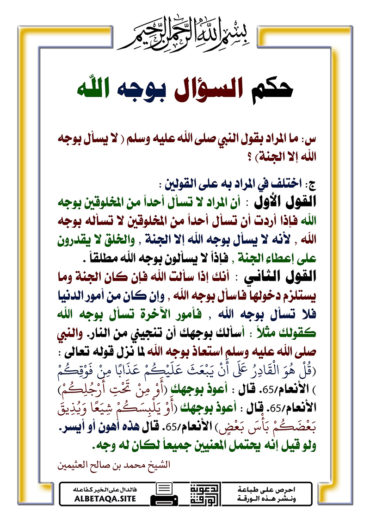 بسم الله الرحمن الرحيم
حكم السؤال بوجه الله
س: ما المراد بقول النبي صلى الله عليه وسلم ( لا يسأل بوجه
الله إلا الجنة) ؟
ج: اختلف في المراد به على القولين :
القول الأول : أن المراد لا تسأل أحداً من المخلوقين بوجه
الله فإذا أردت أن تسأل أحداً من المخلوقين لا تسأله بوجه
الله , لأنه لا يسأل بوجه الله إلا الجنة , والخلق لا يقدرون
على إعطاء الجنة , فإذاً لا يسألون بوجه الله مطلقاً .
القول الثاني : أنك إذا سألت الله فإن كان الجنة وما
يستلزم دخولها فاسأل بوجه الله , وإن كان من أمور الدنيا
فلا تسأل بوجه الله , فأمور الآخرة تسأل بوجه الله
كقولك مثلاً : أسألك بوجهك أن تنجيني من النار. والنبي
صلى الله عليه وسلم استعاذ بوجه الله لما نزل قوله تعالى :
(قُلْ هُوَ الْقَادِرُ عَلَىٰ أَنْ يَبْعَثَ عَلَيْكُمْ عَذَابًا مِنْ فَوْقِكُمْ
) الأنعام/65. قال : أعوذ بوجهك (أَوْ مِنْ تَحْتِ أَرْجُلِكُمْ)
الأنعام/65. قال : أعوذ بوجهك (أَوْ يَلْبِسَكُمْ شِيَعًا وَيُذِيقَ
بَعْضَكُمْ بَأْسَ بَعْضٍ) الأنعام/65. قال هذه أهون أو أيسر.
ولو قيل إنه يحتمل المعنيين جميعاً لكان له وجه.
الشيخ محمد بن صالح العثيمين
احرص على طباعة
ونشر هذه الورقة
فالدال على الخير كفاعله
ALBETAQA.SITE